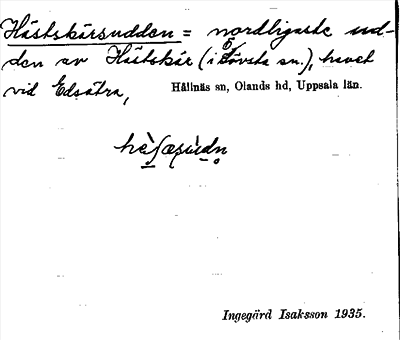 Hästskärsudden = nordligaste ud-
den av Hästskär (i Lövsta sn.), havet
vid Edsätra,
Hållnäs sn, Olands hd, Uppsala län.
Ingegärd Isaksson 1935.